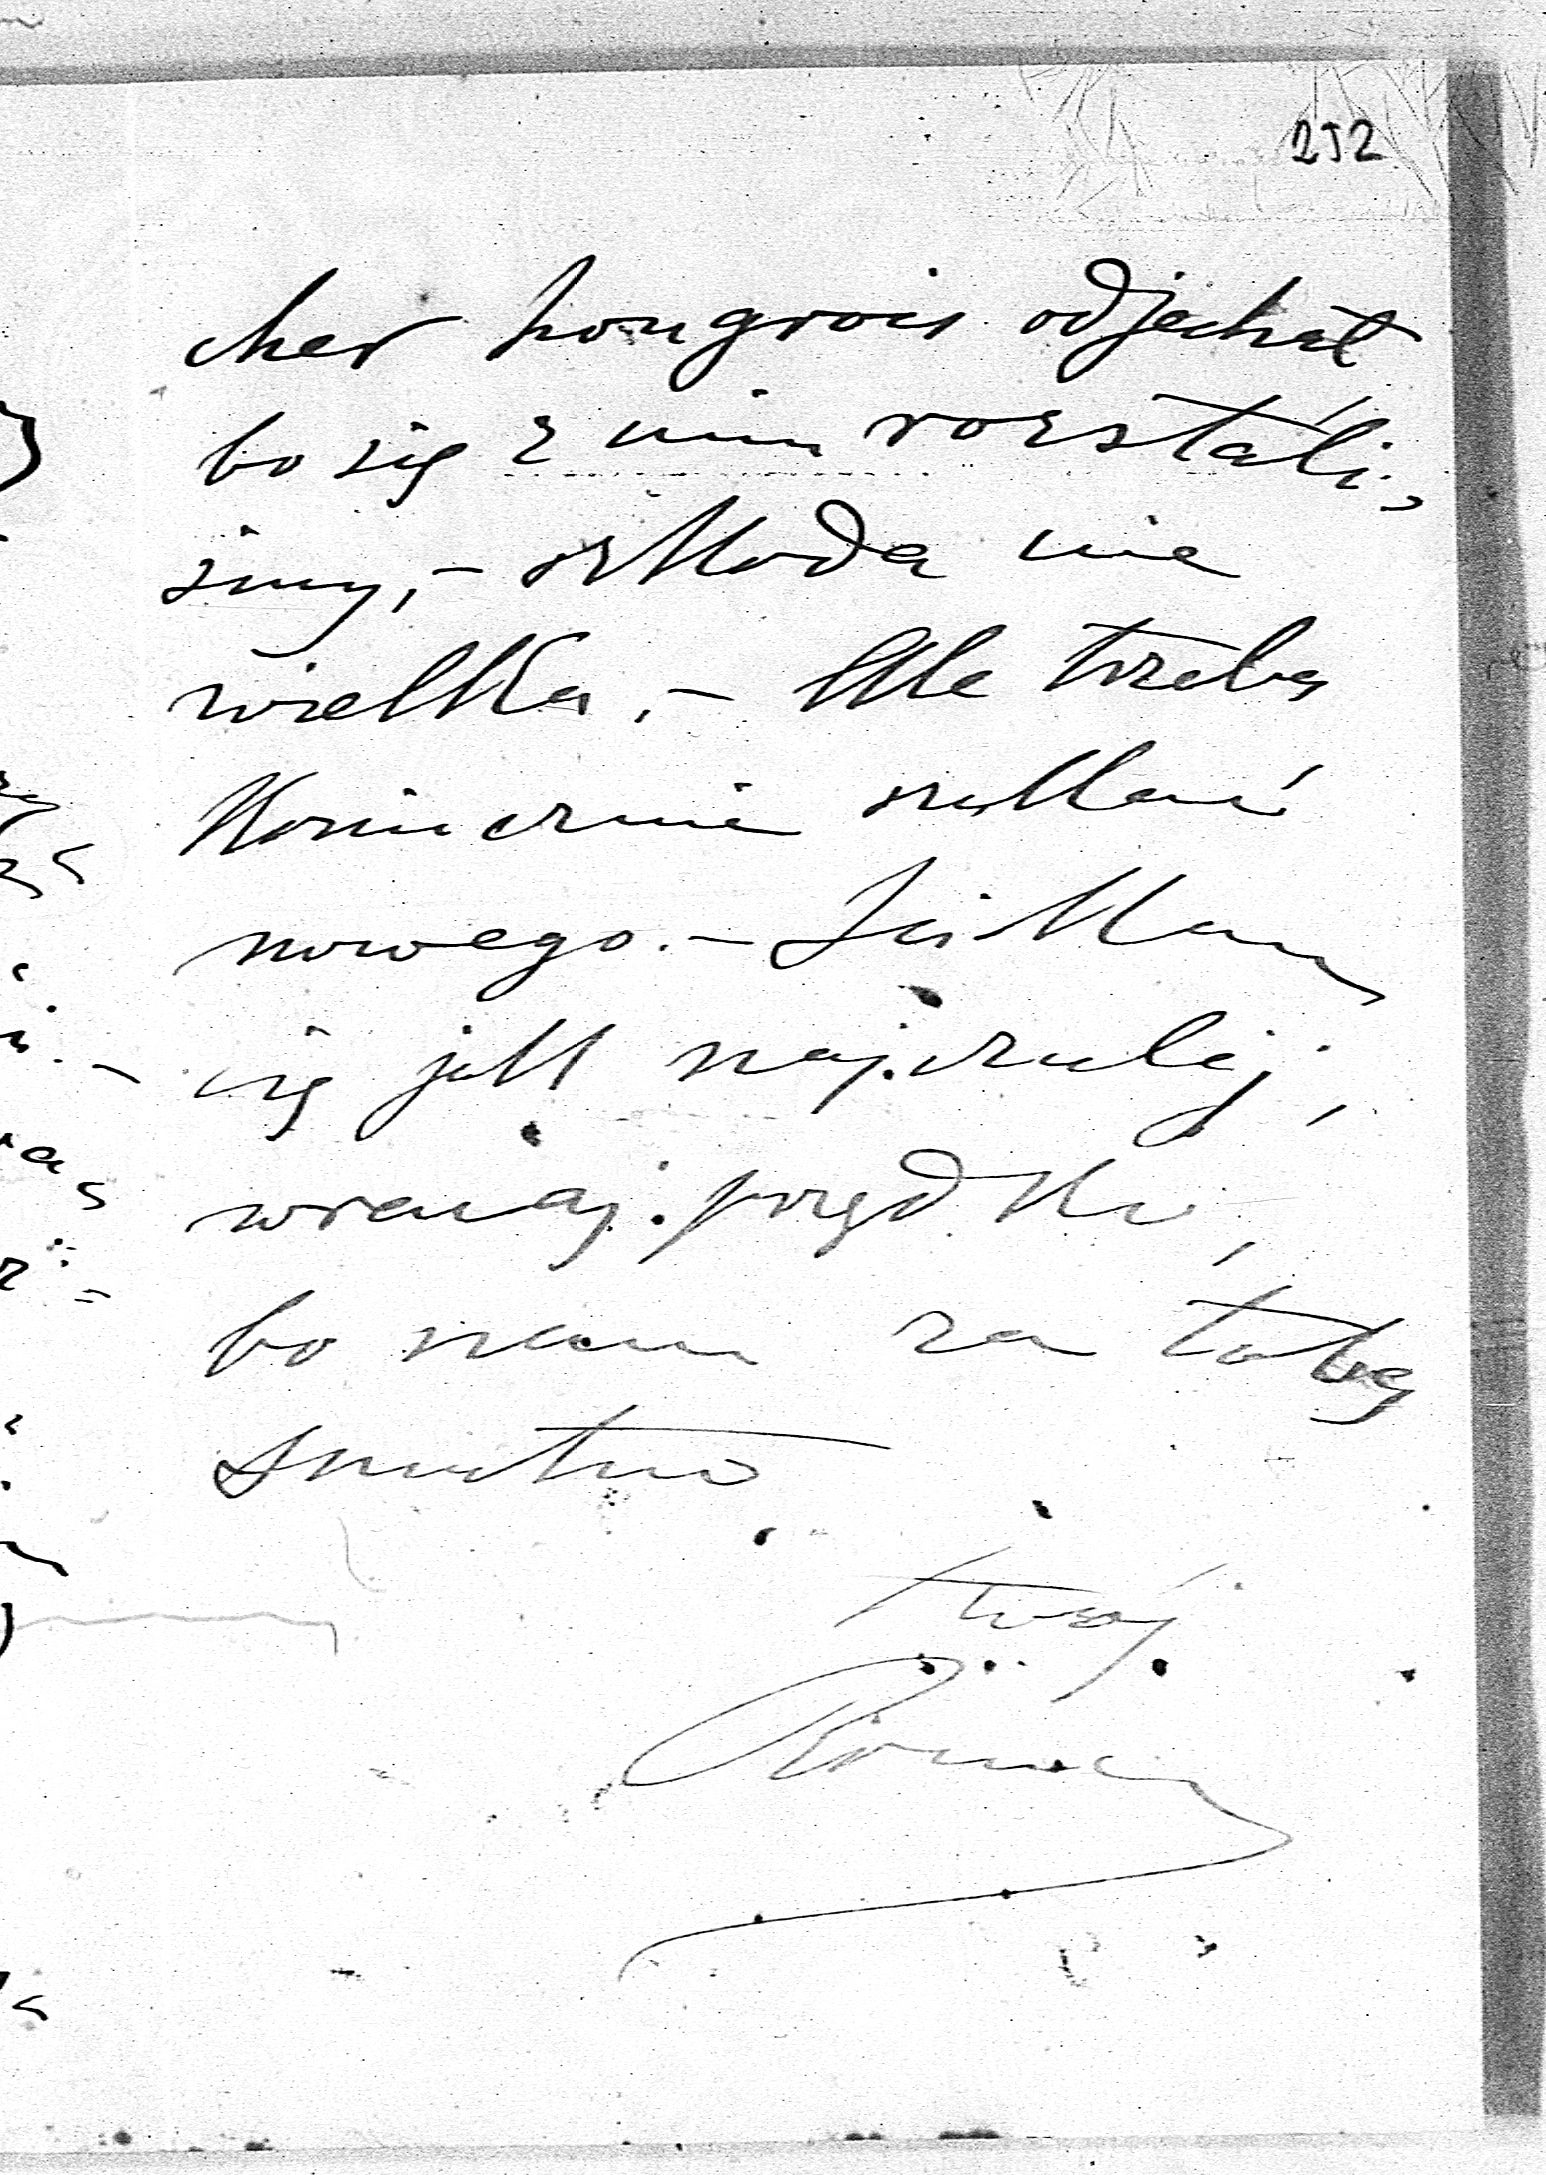 252
cher hongrois odjechał
bo się z nim rozstali,
śmy, – szkoda nie
wielka, – Ale trzeba
koniecznie szukać
nowego. – Ściskam
cię jak najczulej,
wracaj prędko,
bo nam za tobą
smutno
twój
Roman